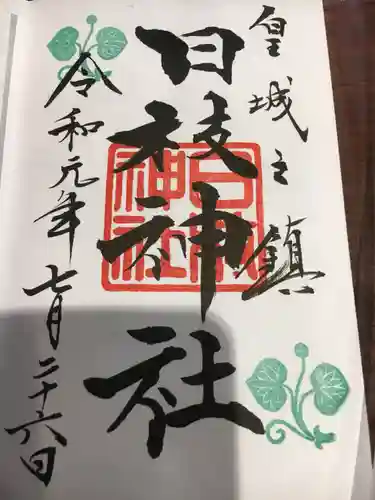 皇城之鎮
日枝神社
令和元年七月二十六日
日枝神社